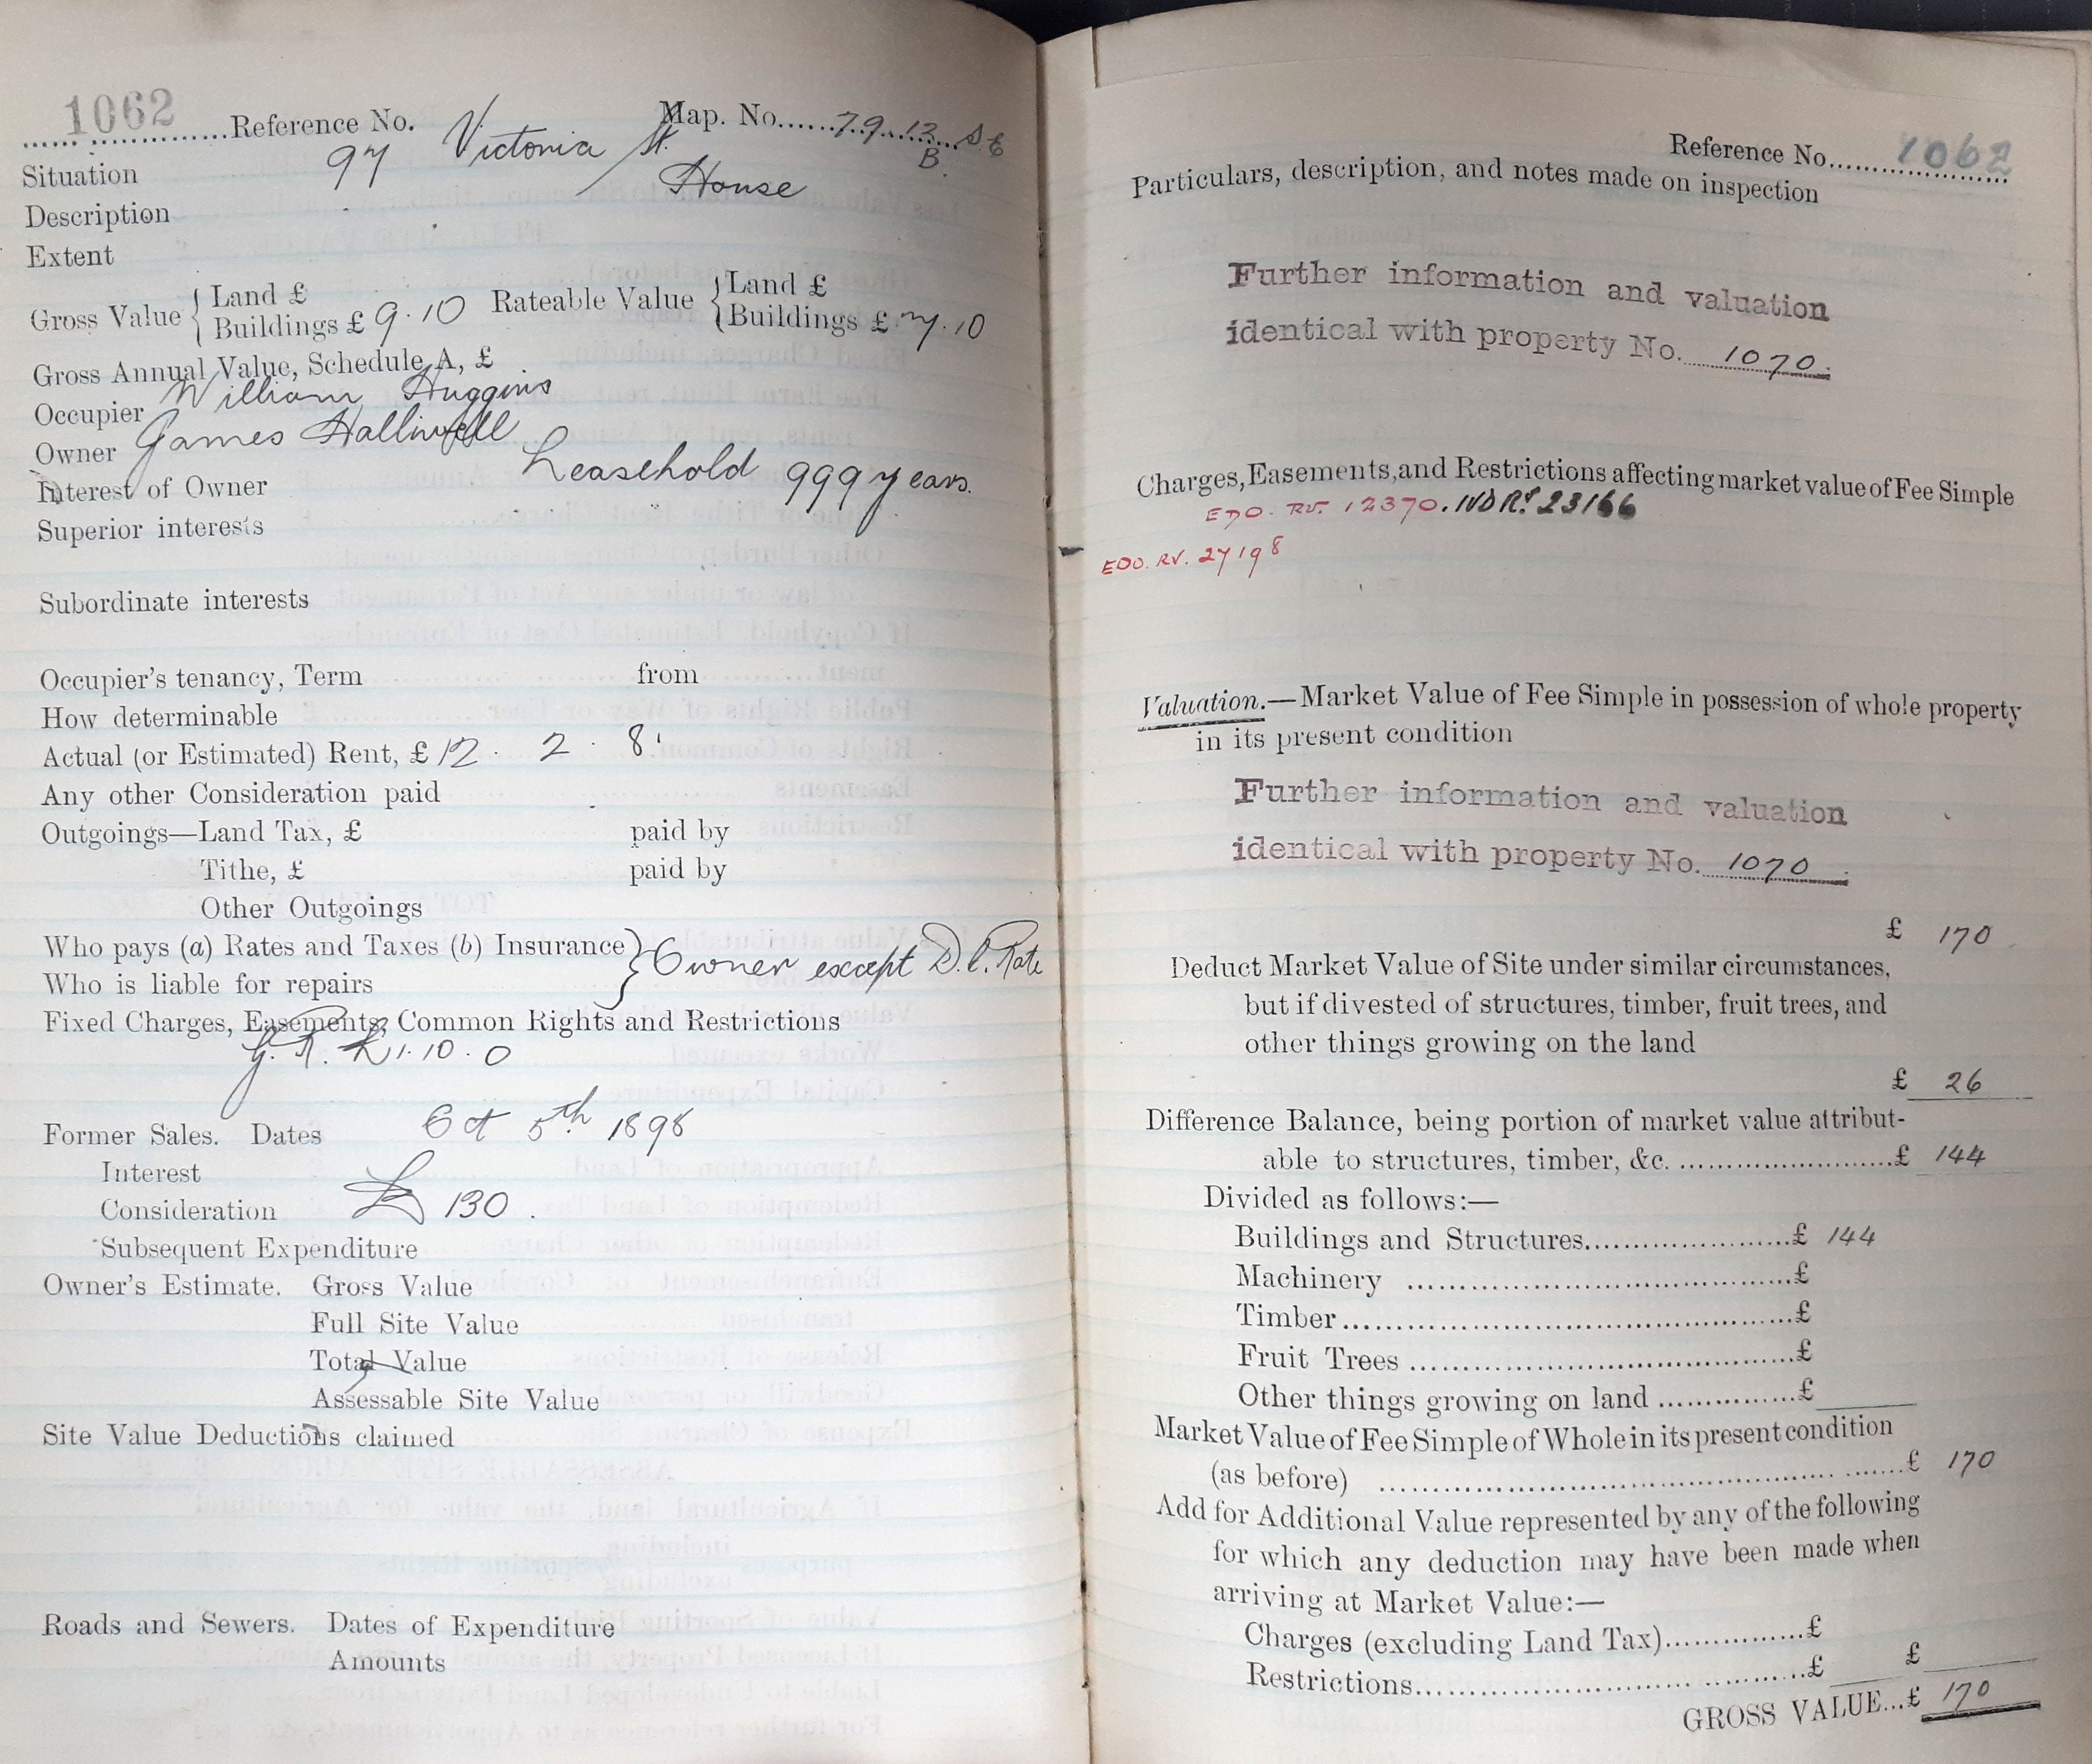 1062 Reference No. Map. No. 79.13 S.E
B.
Situation 97 Victoria St.
Description House
Extent
Gross Value { Land £
Buildings £ 9.10
Rateable Value { Land £
Buildings £ 7.10
Gross Annual Value, Schedule A, £
Occupier William Huggins
Owner James Halliwell
Interest of Owner Leasehold 999 years.
Superior interests
Subordinate interests
Occupier's tenancy, Term from
How determinable
Actual (or Estimated) Rent, £ 12 . 2 . 8.
Any other Consideration paid
Outgoings—Land Tax, £ paid by
Tithe, £ paid by
Other Outgoings
Who pays (a) Rates and Taxes (b) Insurance } Owner except D.C. Rate
Who is liable for repairs
Fixed Charges, Easements, Common Rights and Restrictions
G. R. £1.10.0
Former Sales. Dates Oct 5th 1898
Interest
Consideration £130.
Subsequent Expenditure
Owner's Estimate. Gross Value
Full Site Value
Total Value
Assessable Site Value
Site Value Deductions claimed
Roads and Sewers. Dates of Expenditure
Amounts
Reference No. 1062
Particulars, description, and notes made on inspection
Further information and valuation
identical with property No. 1070.
Charges, Easements, and Restrictions affecting market value of Fee Simple
RV. 12370. 23166
EDO. RV. 27198
Valuation.—Market Value of Fee Simple in possession of whole property
in its present condition
Further information and valuation
identical with property No. 1070.
£ 170
Deduct Market Value of Site under similar circumstances,
but if divested of structures, timber, fruit trees, and
other things growing on the land
£ 26
Difference Balance, being portion of market value attribut-
able to structures, timber, &c. £ 144
Divided as follows:—
Buildings and Structures £ 144
Machinery £
Timber £
Fruit Trees £
Other things growing on land £
Market Value of Fee Simple of Whole in its present condition
(as before) £ 170
Add for Additional Value represented by any of the following
for which any deduction may have been made when
arriving at Market Value:—
Charges (excluding Land Tax) £
Restrictions £ £
GROSS VALUE...£ 170